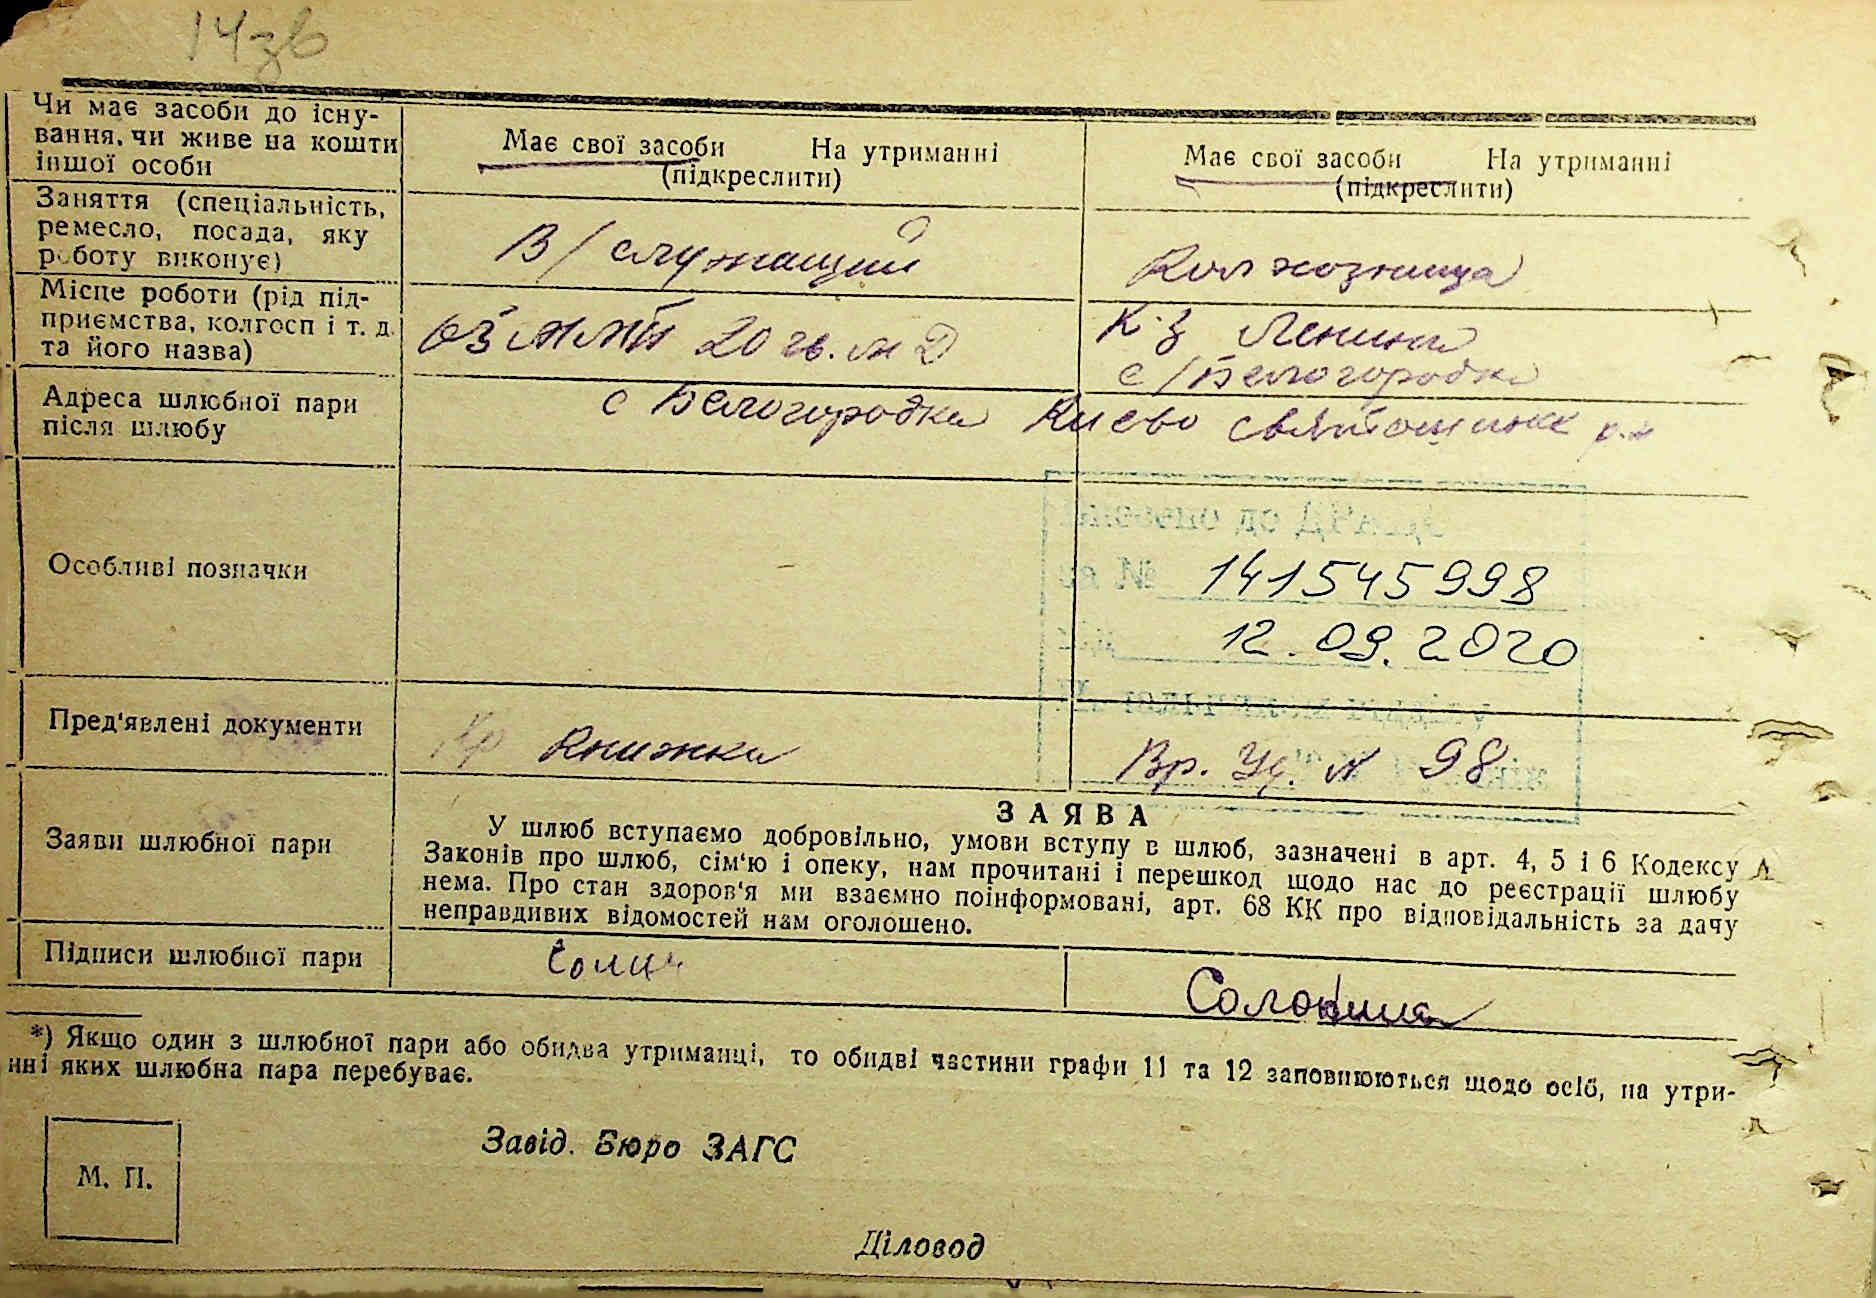 14зв
Чи має засоби до існу-
вання, чи живе на кошти
іншої особи
Має свої засоби На утриманні
(підкреслити)
Має свої засоби На утриманні
(підкреслити)
Заняття (спеціальність,
ремесло, посада, яку
роботу виконує)
В/служащий
Колхозница
Місце роботи (рід під-
приємства, колгосп і т. д.
та його назва)
20 гв. м Д
К-з Ленина
с/Белогородка
Адреса шлюбної пари
після шлюбу
с Белогородка Киево святошинск р-н
Особливі позначки
141545998
12.09.2020
Пред'явлені документи
Кр книжка
Вр. Уд. № 98
Заяви шлюбної пари
ЗАЯВА
У шлюб вступаємо добровільно, умови вступу в шлюб, зазначені в арт. 4, 5 і 6 Кодексу
Законів про шлюб, сім'ю і опеку, нам прочитані і перешкод щодо нас до реєстрації шлюбу
нема. Про стан здоров'я ми взаємно поінформовані, арт. 68 КК про відповідальність за дачу
неправдивих відомостей нам оголошено.
Підписи шлюбної пари
*) Якщо один з шлюбної пари або обидва утриманці, то обидві частини графи 11 та 12 заповнюються щодо осіб, на утри-
нні яких шлюбна пара перебуває.
М. П.
Завід. Бюро ЗАГС
Діловод